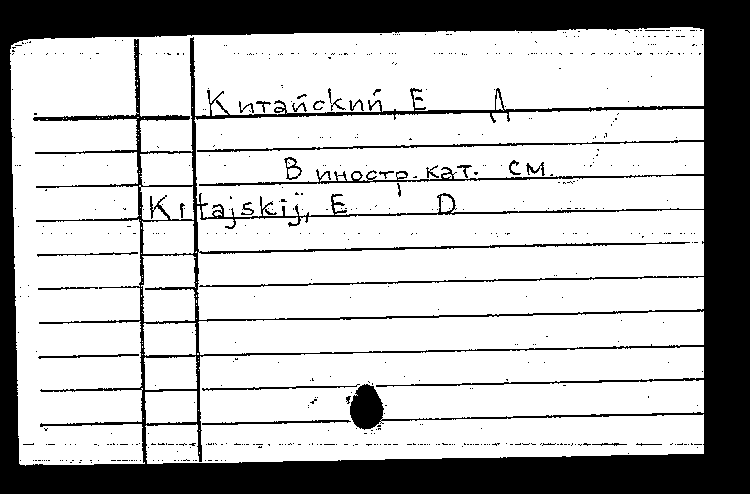 Китайский, Е Д
В иностр. кат. см.
Kitajskij, E D